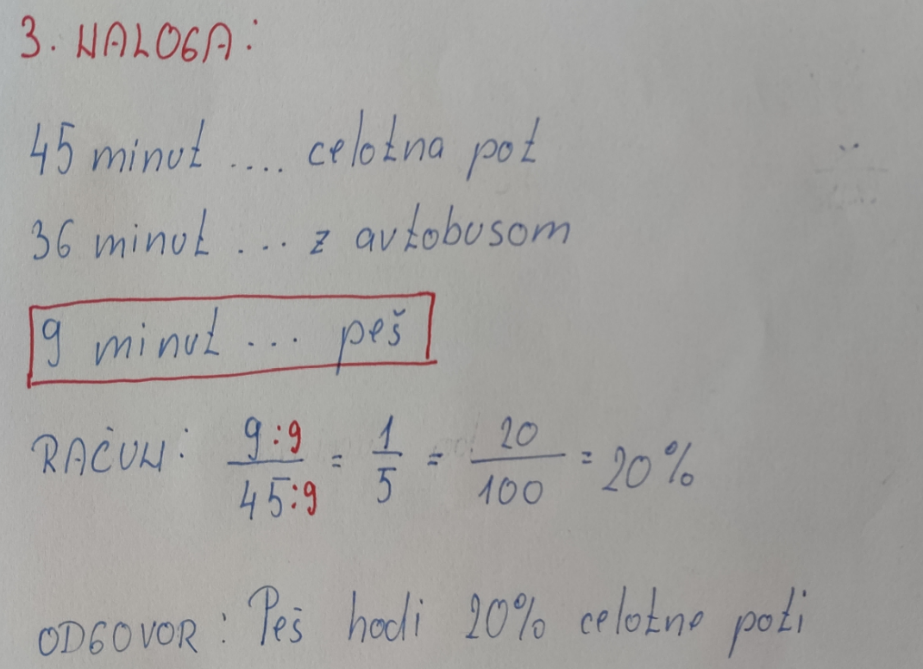 3. NALOGA:
45 minut .... celotna pot
36 minut ... z avtobusom
9 minut ... peš
RAČUN: 9:9/45:9 = 1/5 = 20/100 = 20%
ODGOVOR: Peš hodi 20% celotne poti